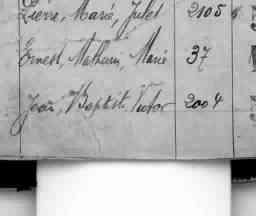 Pierre, Marie, Jules 2105
Ernest, Mathurin, Marie 37
Jean, Baptiste Victor 2004